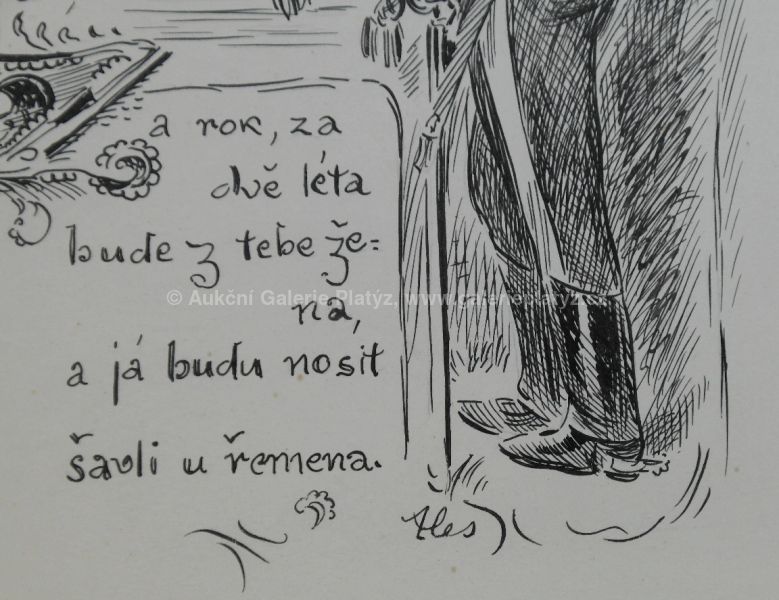 a rok, za
dvě léta
bude z tebe že=
na,
© Aukční Galerie Platýz, www.galerieplatyz.cz
a já budu nosit
šavli u řemena.
Aleš